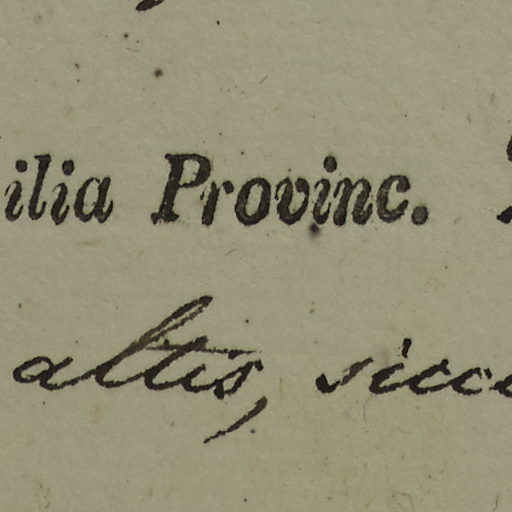 ilia Provinc.
altis, sicc